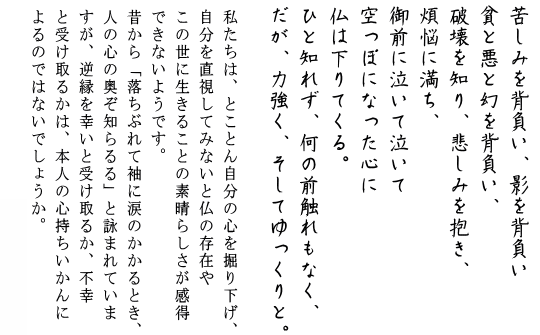 苦しみを背負い、影を背負い
貪と悪と幻を背負い、
破壊を知り、悲しみを抱き、
煩悩に満ち、
御前に泣いて泣いて
空っぽになった心に
仏は下りてくる。
ひと知れず、何の前触れもなく、
だが、力強く、そしてゆっくりと。
私たちは、とことん自分の心を掘り下げ、
自分を直視してみないと仏の存在や
この世に生きることの素晴らしさが感得
できないようです。
昔から「落ちぶれて袖に涙のかかるとき、
人の心の奥ぞ知らるる」と詠まれていま
すが、逆縁を幸いと受け取るか、不幸
と受け取るかは、本人の心持ちいかんに
よるのではないでしょうか。